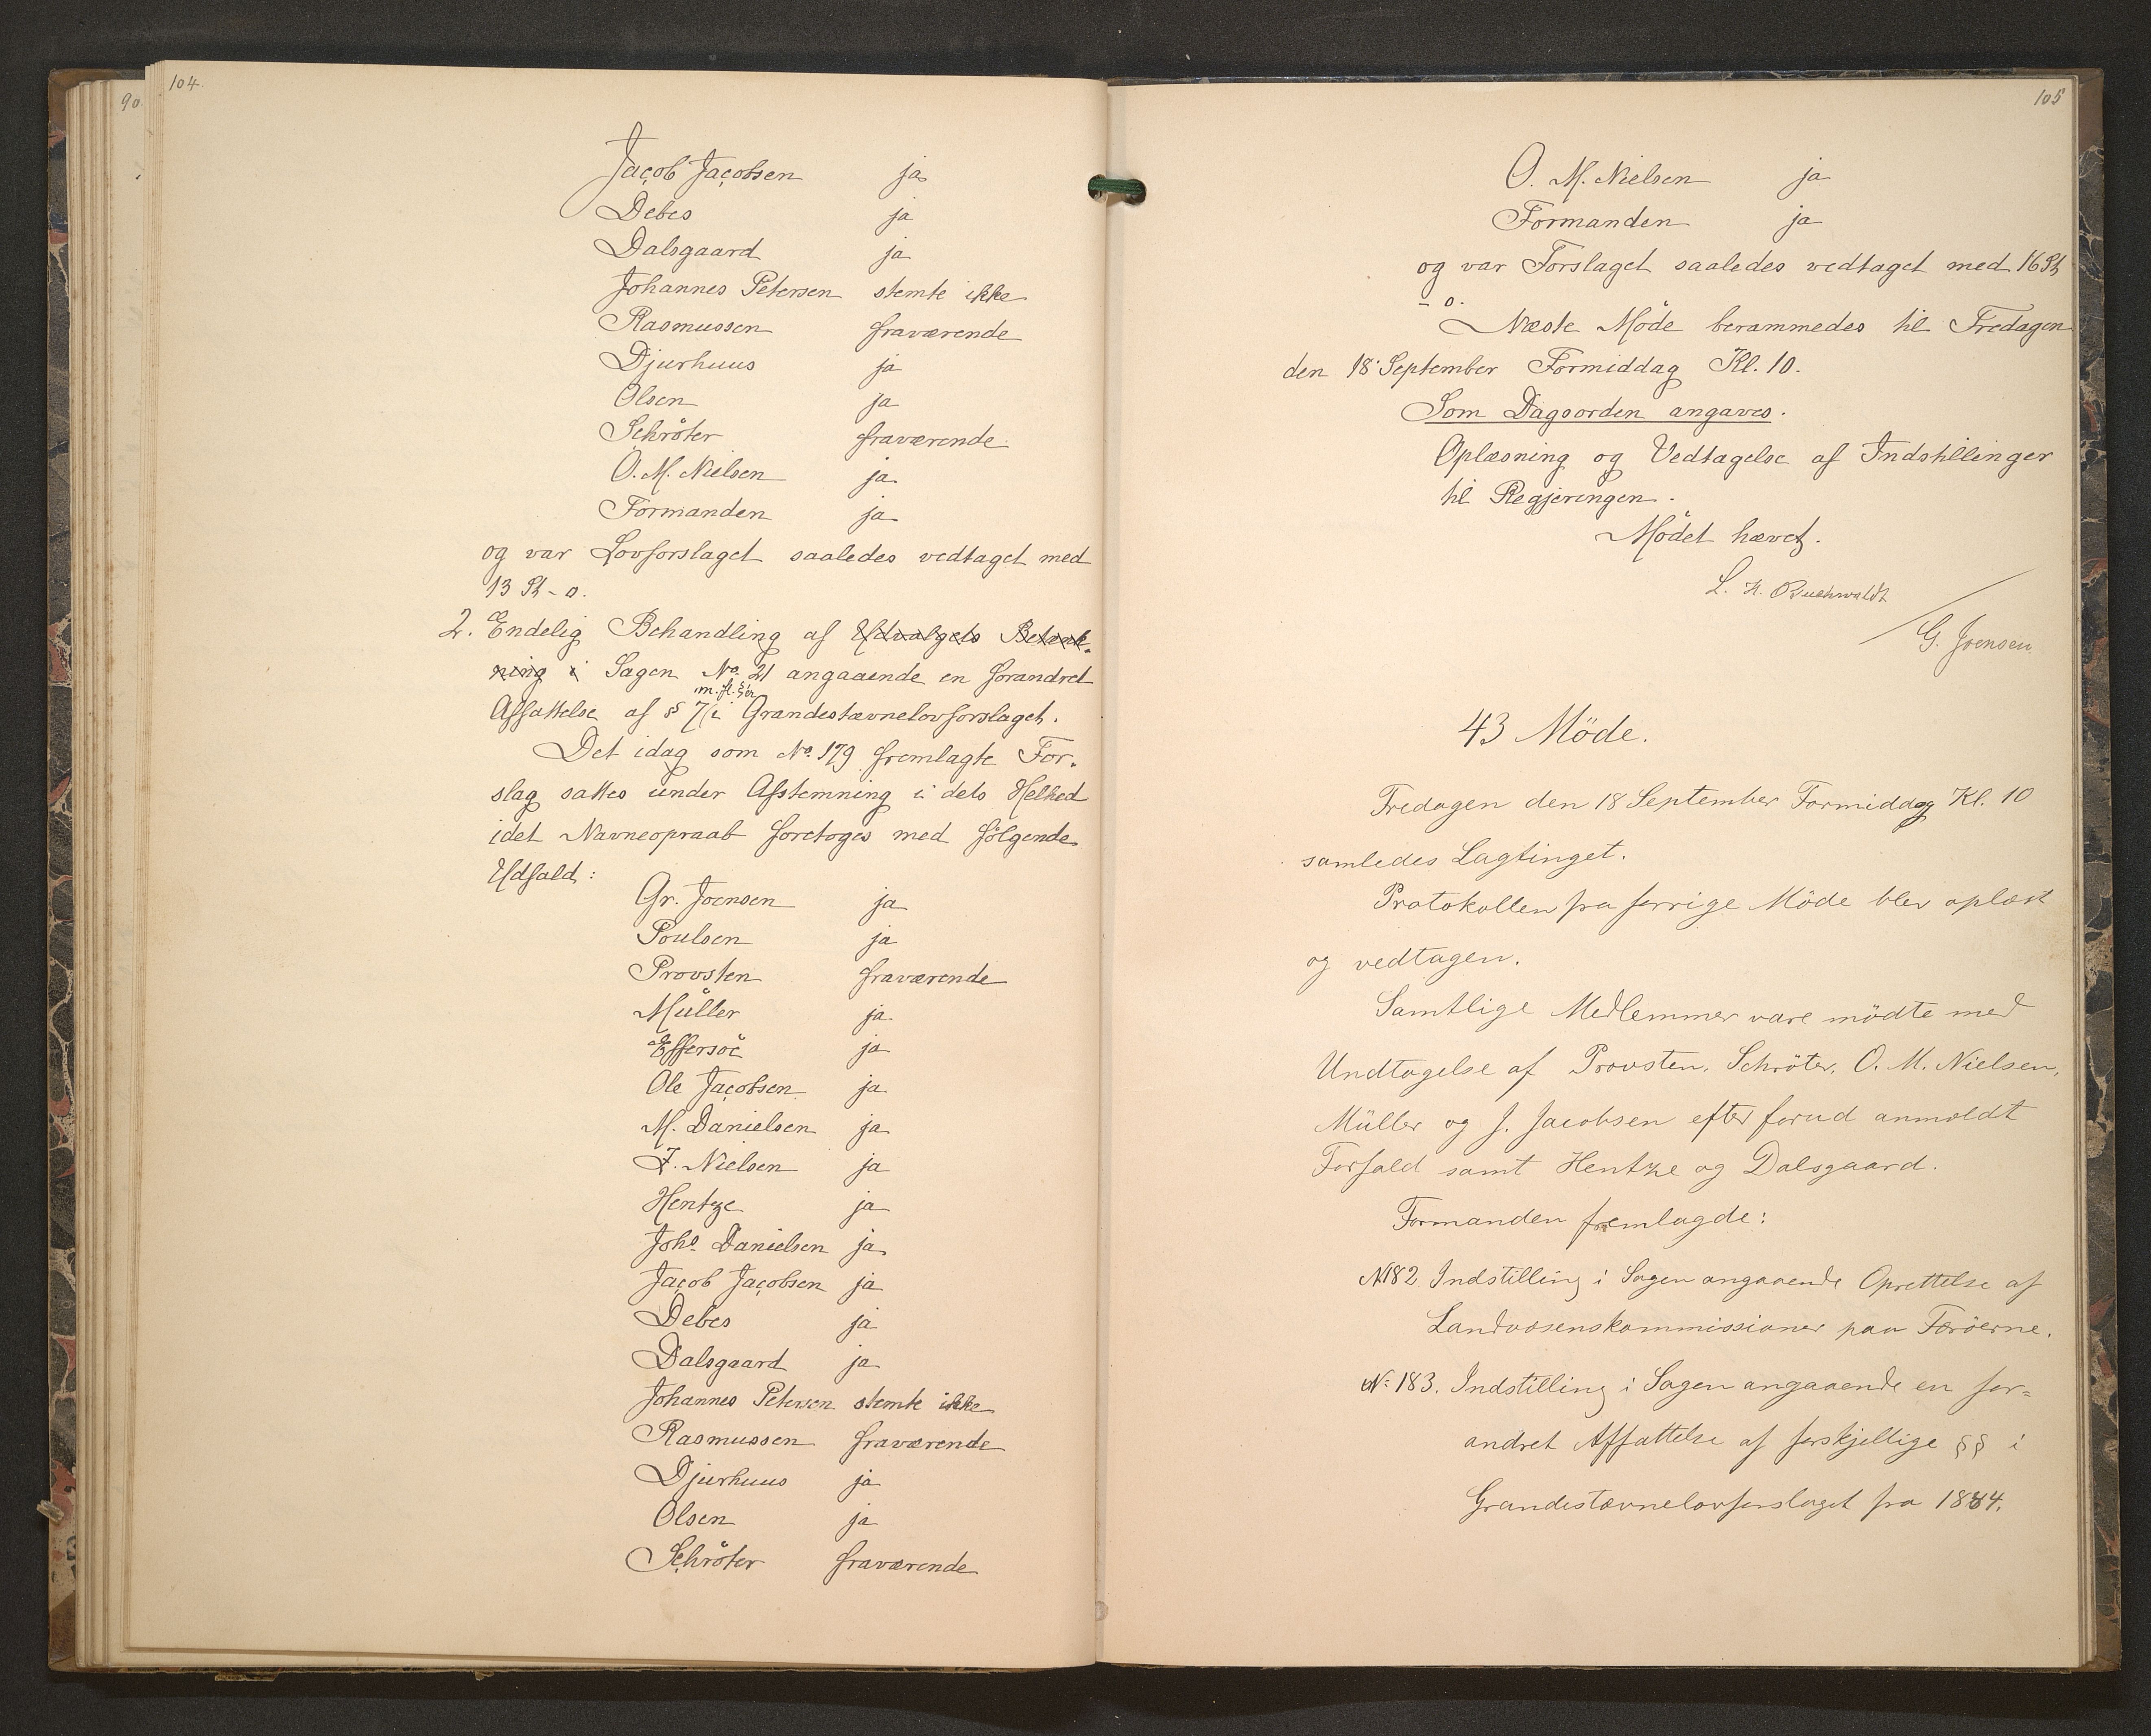 90.
104.
Jacob Jacobsen ja
Debes ja
Dalsgaard ja
Johannes Petersen stemte ikke
Rasmussen fraværende
Djurhuus ja
Olsen ja
Schröter fraværende
O. M. Nielsen ja
Formanden ja
og var Lovforslaget saaledes vedtaget med
13 St - 0.
2. Endelig Behandling af Udvalgets Betænk-
ning i Sagen No. 21 angaaende en forandret
m. fl. §'er
Affattelse af § 7 i Grandestævnelovforslaget.
Det idag som No. 179 fremlagte For-
slag sattes under Afstemning i dets Helhed
idet Navneopraab foretoges med følgende
Udfald:
Gr. Joensen ja
Poulsen ja
Provsten fraværende
Müller ja
Effersöe ja
Ole Jacobsen ja
M. Danielsen ja
J. Nielsen ja
Hentze ja
Johs. Danielsen ja
Jacob Jacobsen ja
Debes ja
Dalsgaard ja
Johannes Petersen stemte ikke
Rasmussen fraværende
Djurhuus ja
Olsen ja
Schröter fraværende
105
O. M. Nielsen ja
Formanden ja
og var Forslaget saaledes vedtaget med 16 St
- 0.
Næste Møde berammedes til Fredagen
den 18' September Formiddag Kl. 10.
Som Dagsorden angaves.
Oplæsning og Vedtagelse af Indstillinger
til Regjeringen.
Mödet hævet.
L. H. Buchwaldt
G. Joensen
43 Möde.
Fredagen den 18 September Formiddag Kl. 10
samledes Lagtinget.
Protokollen fra forrige Möde blev oplæst
og vedtagen.
Samtlige Medlemmer vare mödte med
Undtagelse af Provsten, Schröter, O. M. Nielsen,
Müller og J. Jacobsen efter forud anmeldt
Forfald samt Hentze og Dalsgaard.
Formanden fremlagde:
N 182 Indstilling i Sagen angaaende Oprettelse af
Landvæsenskommissioner paa Færöerne.
N: 183. Indstilling i Sagen angaaende en for=
andret Affattelse af forskjellige §§ i
Grandestævnelovforslaget fra 1884.